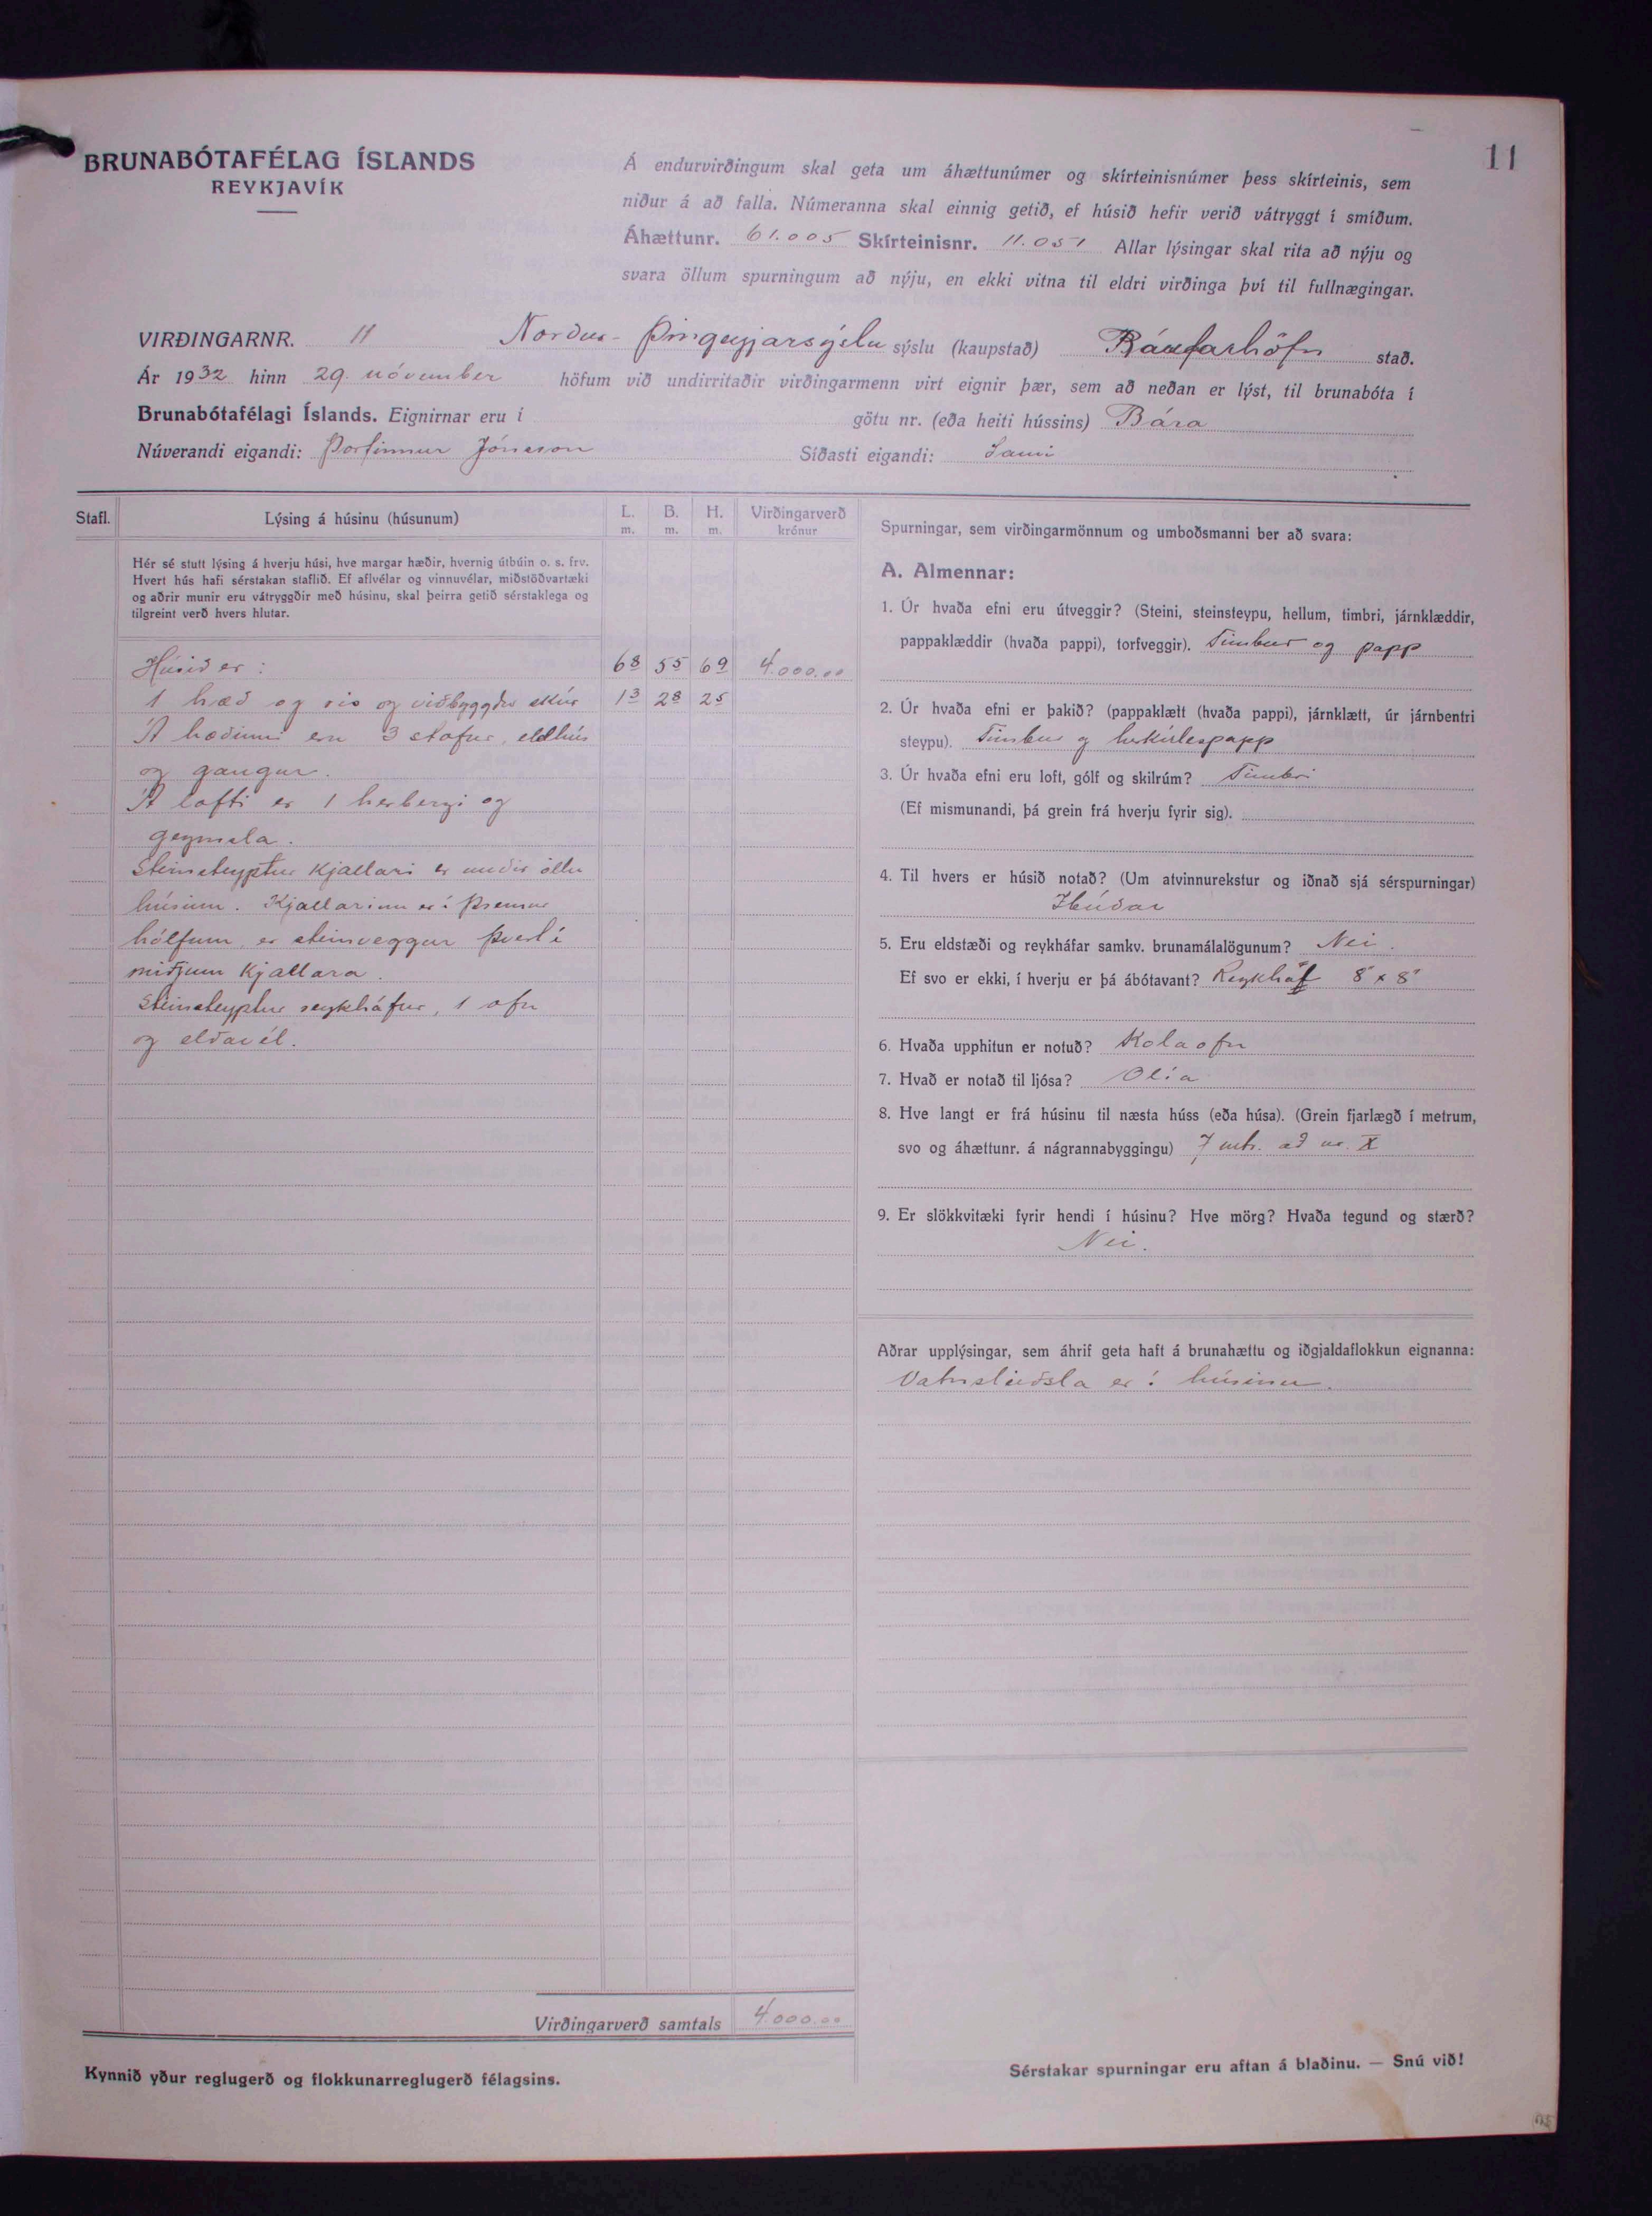 11
BRUNABÓTAFÉLAG ÍSLANDS
REYKJAVÍK
Á endurvirðingum skal geta um áhættunúmer og skírteinisnúmer þess skírteinis, sem
niður á að falla. Númeranna skal einnig getið, ef húsið hefir verið vátryggt í smíðum.
Áhættunr. 61.005 Skírteinisnr. 11.051 Allar lýsingar skal rita að nýju og
svara öllum spurningum að nýju, en ekki vitna til eldri virðinga því til fullnægingar.
VIRÐINGARNR. 11 Norður-Þingeyjarsýslu sýslu (kaupstað) Raufarhöfn stað.
Ár 1932 hinn 29. nóvember höfum við undirritaðir virðingarmenn virt eignir þær, sem að neðan er lýst, til brunabóta í
Brunabótafélagi Íslands. Eignirnar eru í götu nr. (eða heiti hússins) Bára
Núverandi eigandi: Þorfinnur Jónsson Síðasti eigandi: Sami
Stafl. Lýsing á húsinu (húsunum) L. m. B. m. H. m. Virðingarverð krónur
Hér sé stutt lýsing á hverju húsi, hve margar hæðir, hvernig útbúin o. s. frv.
Hvert hús hafi sérstakan staflið. Ef aflvélar og vinnuvélar, miðstöðvartæki
og aðrir munir eru vátryggðir með húsinu, skal þeirra getið sérstaklega og
tilgreint verð hvers hlutar.
Húsið er: 68 55 69 4.000.00
1 hæð og ris og viðbyggður skúr 13 28 25
Á hæðinni eru 3 stofur, eldhús
og gangur.
Á lofti er 1 herbergi og
geymsla.
Steinsteyptur kjallari er undir öllu
húsinu. Kjallarinn er í þremur
hólfum, er steinveggur þvert í
miðjum kjallara.
Steinsteyptur reykháfur, 1 ofn
og eldavél.
Virðingarverð samtals 4.000.00
Kynnið yður reglugerð og flokkunarreglugerð félagsins.
Spurningar, sem virðingarmönnum og umboðsmanni ber að svara:
A. Almennar:
1. Úr hvaða efni eru útveggir? (Steini, steinsteypu, hellum, timbri, járnklæddir,
pappaklæddir (hvaða pappi), torfveggir). Timbur og papp
2. Úr hvaða efni er þakið? (pappaklætt (hvaða pappi), járnklætt, úr járnbentri
steypu). Timbur og herkúlespapp
3. Úr hvaða efni eru loft, gólf og skilrúm? Timbri
(Ef mismunandi, þá grein frá hverju fyrir sig).
4. Til hvers er húsið notað? (Um atvinnurekstur og iðnað sjá sérspurningar)
Íbúðar
5. Eru eldstæði og reykháfar samkv. brunamálalögunum? Nei.
Ef svo er ekki, í hverju er þá ábótavant? Reykháf 8" x 8"
6. Hvaða upphitun er notuð? Kolaofn
7. Hvað er notað til ljósa? Olía
8. Hve langt er frá húsinu til næsta húss (eða húsa). (Grein fjarlægð í metrum,
svo og áhættunr. á nágrannabyggingu) 7 mtr. að nr. X
9. Er slökkvitæki fyrir hendi í húsinu? Hve mörg? Hvaða tegund og stærð?
Nei.
Aðrar upplýsingar, sem áhrif geta haft á brunahættu og iðgjaldaflokkun eignanna:
Vatnsleiðsla er í húsinu.
Sérstakar spurningar eru aftan á blaðinu. — Snú við!